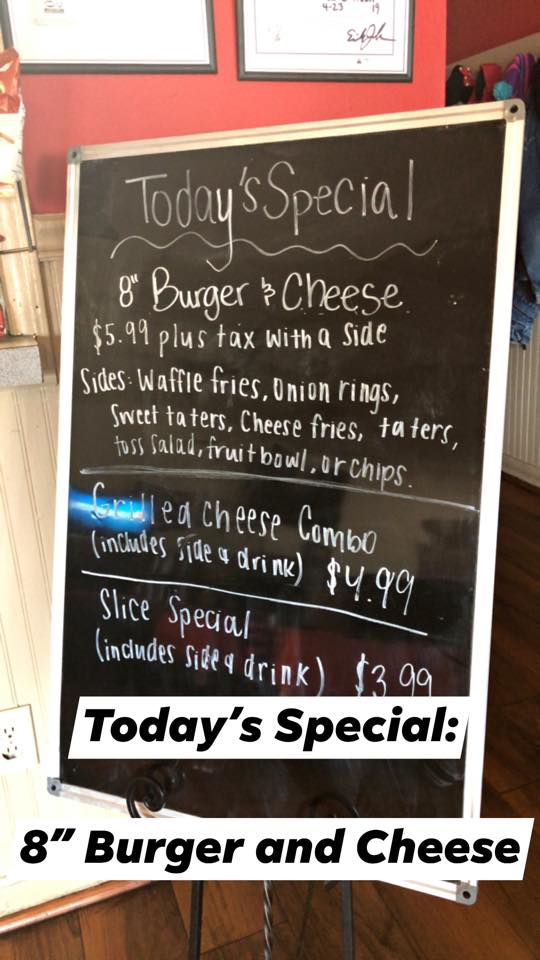 4-23 19
Today's Special
8" Burger & Cheese
$5.99 plus tax with a side
Sides: Waffle fries, Onion rings,
Sweet taters, Cheese fries, taters,
toss salad, fruit bowl, or chips.
Grilled Cheese Combo
(includes side & drink) $4.99
Slice Special
(includes side & drink) $3.99
Today's Special:
8" Burger and Cheese